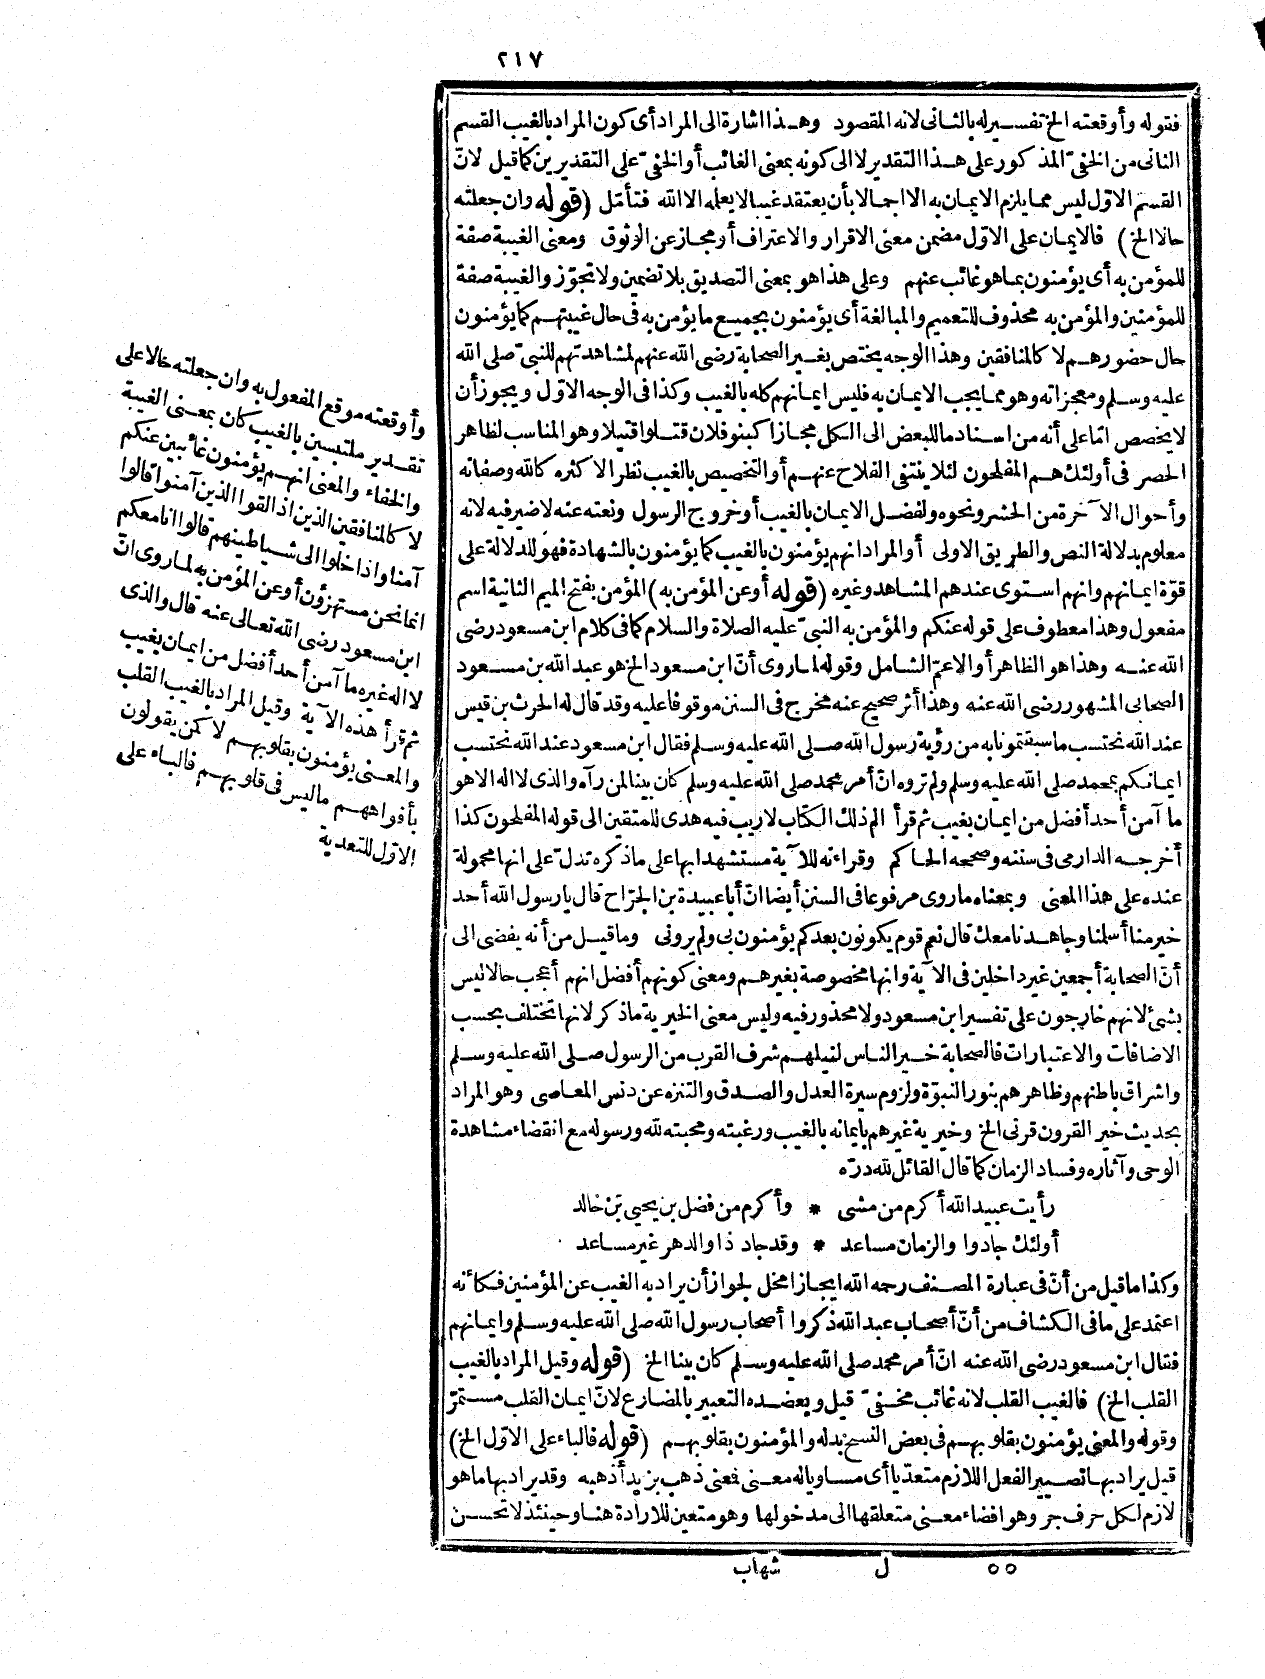 ٢١٧
فقوله وأوقعته الخ تفسير له بالثانى لانه المقصود وهذا اشارة الى المراد أى كون المراد بالغيب القسم
الثانى من الخفىّ المذكور على هذا التقدير لا الى كونه بمعنى الغائب أو الخفىّ على التقديرين كما قيل لانّ
القسم الاوّل ليس مما يلزم الايمان به الا اجمالا بأن يعتقد غيبا لا يعلمه الا الله فتأمّل (قوله وان جعلته
حالا الخ) فالايمان على الاوّل مضمن معنى الاقرار والاعتراف أو مجاز عن الوثوق ومعنى الغيبة صفة
للمؤمن به أى يؤمنون بما هو غائب عنهم وعلى هذا هو بمعنى التصديق بلا تضمين ولا تجوّز والغيبة صفة
للمؤمنين والمؤمن به محذوف للتعميم والمبالغة أى يؤمنون بجميع ما يؤمن به فى حال غيبتهم كما يؤمنون
حال حضورهم لا كالمنافقين وهذا الوجه يختص بغير الصحابة رضى الله عنهم لمشاهدتهم للنبىّ صلى الله
عليه وسلم ومعجزاته وهو مما يجب الايمان به فليس ايمانهم كله بالغيب وكذا فى الوجه الاوّل ويجوز أن
لا يخصص امّا على أنه من اسناد ما للبعض الى الكل مجازا كبنو فلان قتلوا قتيلا وهو المناسب لظاهر
الحصر فى أولئك هم المفلحون لئلا ينتفى الفلاح عنهم أو التخصيص بالغيب نظر الاكثره كالله وصفاته
وأحوال الآخرة من الحشر ونحوه ولفضل الايمان بالغيب أو خروج الرسول ونعته عنه لا ضير فيه لانه
معلوم بدلالة النص والطريق الاولى أو المراد انهم يؤمنون بالغيب كما يؤمنون بالشهادة فهو للدلالة على
قوّة ايمانهم وانهم استوى عندهم المشاهد وغيره (قوله أو عن المؤمن به) المؤمن بفتح الميم الثانية اسم
مفعول وهذا معطوف على قوله عنكم والمؤمن به النبىّ عليه الصلاة والسلام كما فى كلام ابن مسعود رضى
الله عنه وهذا هو الظاهر أو الاعمّ الشامل وقوله لما روى أنّ ابن مسعود الخ هو عبد الله بن مسعود
الصحابى المشهور رضى الله عنه وهذا أثر صحيح عنه مخرج فى السنن موقوفا عليه وقد قال له الحرث بن قيس
عند الله نحتسب ما سبقتمونا به من رؤية رسول الله صلى الله عليه وسلم فقال ابن مسعود عند الله نحتسب
ايمانكم بمحمد صلى الله عليه وسلم ولم تروه انّ أمر محمد صلى الله عليه وسلم كان بينا لمن رآه والذى لا اله الا هو
ما آمن أحد أفضل من ايمان بغيب ثم قرأ الم ذلك الكتاب لا ريب فيه هدى للمتقين الى قوله المفلحون كذا
أخرجه الدارمى فى سننه وصححه الحاكم وقراءته للآية مستشهدا بها على ما ذكره تدلّ على انها محمولة
عنده على هذا المعنى وبمعناه ما روى مرفوعا فى السنن أيضا انّ أبا عبيدة بن الجرّاح قال يا رسول الله أحد
خير منا أسلمنا وجاهدنا معك قال نعم قوم يكونون بعدكم يؤمنون بى ولم يرونى وما قيل من أنه يفضى الى
أنّ الصحابة أجمعين غير داخلين فى الآية وانها مخصوصة بغيرهم ومعنى كونهم أفضل انهم أعجب حالا ليس
بشئ لانهم خارجون على تفسير ابن مسعود ولا محذور فيه وليس معنى الخيرية ما ذكر لانها تختلف بحسب
الاضافات والاعتبارات فالصحابة خير الناس لنيلهم شرف القرب من الرسول صلى الله عليه وسلم
واشراق باطنهم وظاهرهم بنور النبوّة ولزوم سيرة العدل والصدق والتنزه عن دنس المعاصى وهو المراد
بحديث خير القرون قرنى الخ وخيرية غيرهم بايمانه بالغيب ورغبته ومحبته لله ورسوله مع انقضاء مشاهدة
الوحى وآثاره وفساد الزمان كما قال القائل لله درّه
رأيت عبيد الله أكرم من مشى * وأكرم من فضل بن يحيى بن خالد
أولئك جادوا والزمان مساعد * وقد جاد ذا والدهر غير مساعد
وكذا ما قيل من أنّ فى عبارة المصنف رحمه الله ايجازا مخل لجواز أن يراد به الغيب عن المؤمنين فكأنه
اعتمد على ما فى الكشاف من أنّ أصحاب عبد الله ذكروا أصحاب رسول الله صلى الله عليه وسلم وايمانهم
فقال ابن مسعود رضى الله عنه انّ أمر محمد صلى الله عليه وسلم كان بينا الخ (قوله وقيل المراد بالغيب
القلب الخ) فالغيب القلب لانه غائب مخفىّ قيل ويعضده التعبير بالمضارع لانّ ايمان القلب مستمرّ
وقوله والمعنى يؤمنون بقلوبهم فى بعض النسخ بدله والمؤمنون بقلوبهم (قوله فالباء على الاوّل الخ)
قيل يراد بها تصيير الفعل اللازم متعدّيا أى مساويا له معنى فعنى ذهب بزيد أذهبه وقد يراد بها ما هو
لازم لكل حرف جر وهو افضاء معنى متعلقها الى مدخولها وهو متعين للارادة هنا وحينئذ لا تحسن
وأوقعته موقع المفعول به وان جعلته حالا على
تقدير ملتبسين بالغيب كان بمعنى الغيبة
والخفاء والمعنى انهم يؤمنون غائبين عنكم
لا كالمنافقين الذين اذا لقوا الذين آمنوا قالوا
آمنا واذا خلوا الى شياطينهم قالوا انا معكم
انما نحن مستهزؤن أو عن المؤمن به لما روى انّ
ابن مسعود رضى الله تعالى عنه قال والذى
لا اله غيره ما آمن أحد أفضل من ايمان بغيب
ثم قرأ هذه الآية وقيل المراد بالغيب القلب
والمعنى يؤمنون بقلوبهم لا كمن يقولون
بأفواههم ما ليس فى قلوبهم فالباء على
الاوّل للتعدية
٥٥ ل شهاب